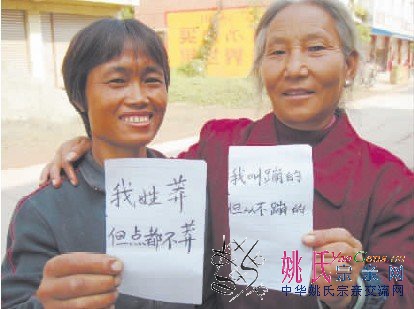 我姓莽
但点都不莽
我叫蹦的
但从不蹦的
姚氏宗亲网
中华姚氏宗亲交流网